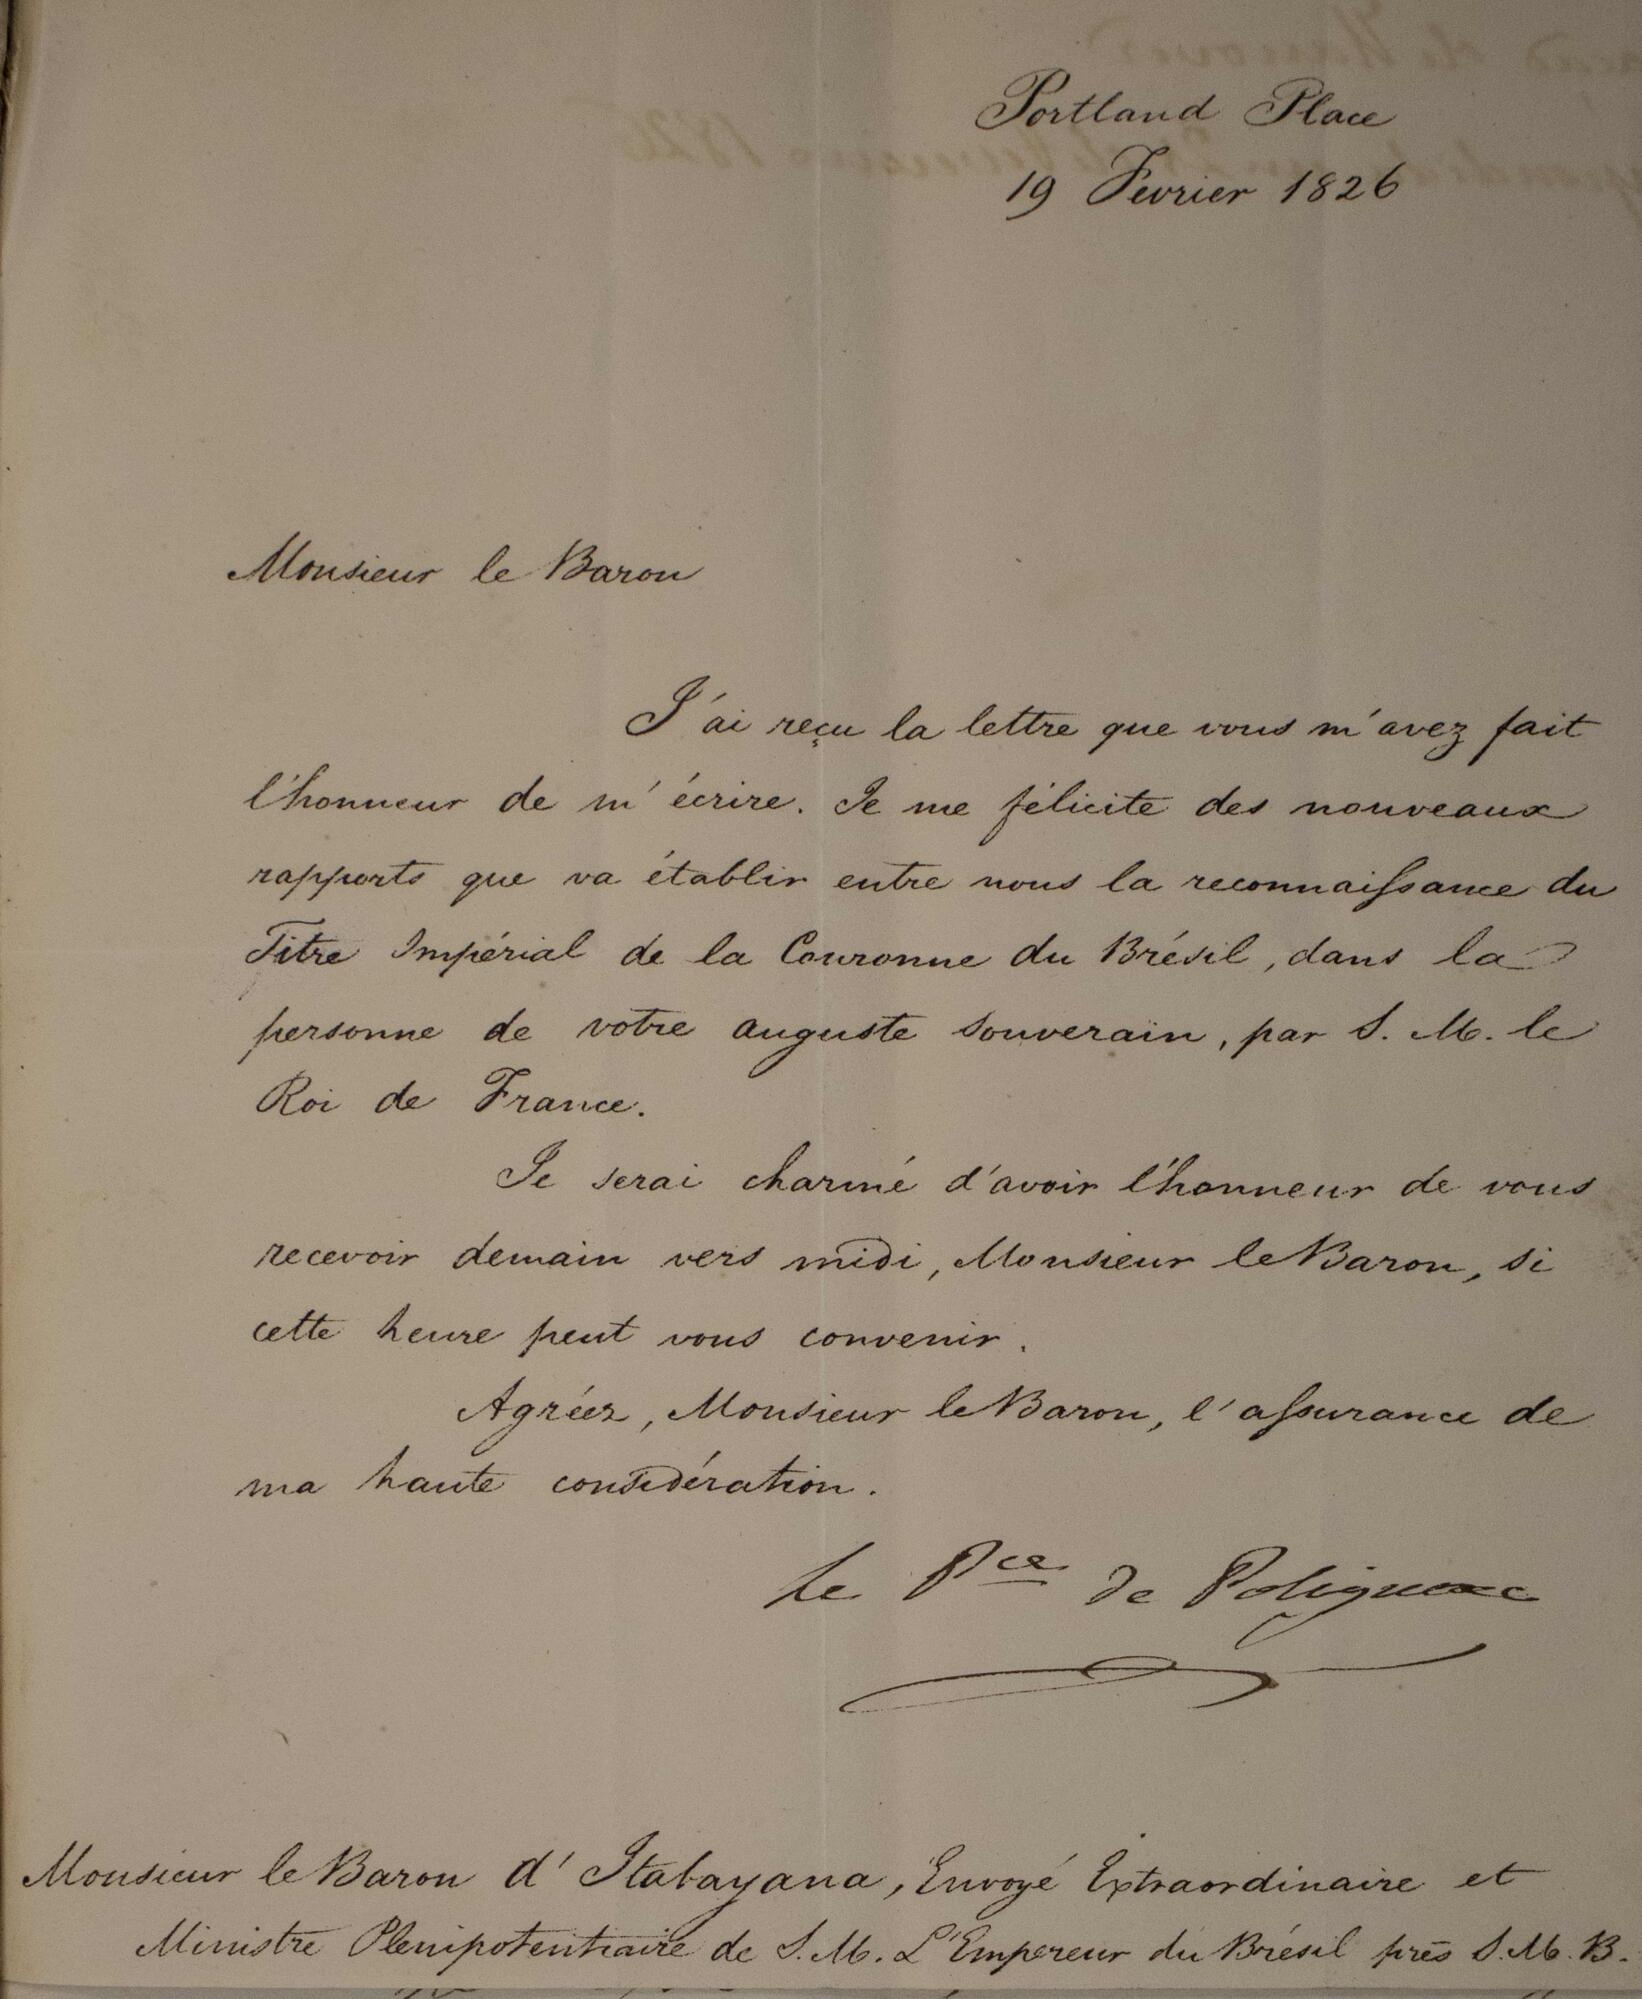 Portland Place
19 Fevrier 1826
Monsieur le Baron
J'ai reçu la lettre que vous m'avez fait
l'honneur de m'écrire. Je me félicite des nouveaux
rapports que va établir entre nous la reconnaissance du
Titre Impérial de la Couronne du Brésil, dans la
personne de votre auguste Souverain, par S. M. le
Roi de France.
Je serai charmé d'avoir l'honneur de vous
recevoir demain vers midi, Monsieur le Baron, si
cette heure peut vous convenir.
Agréez, Monsieur le Baron, l'assurance de
ma haute considération.
le Pce de Polignac
Monsieur le Baron d'Itabayana, Envoyé Extraordinaire et
Ministre Plenipotentiaire de S. M. L'Empereur du Brésil près S. M. B.